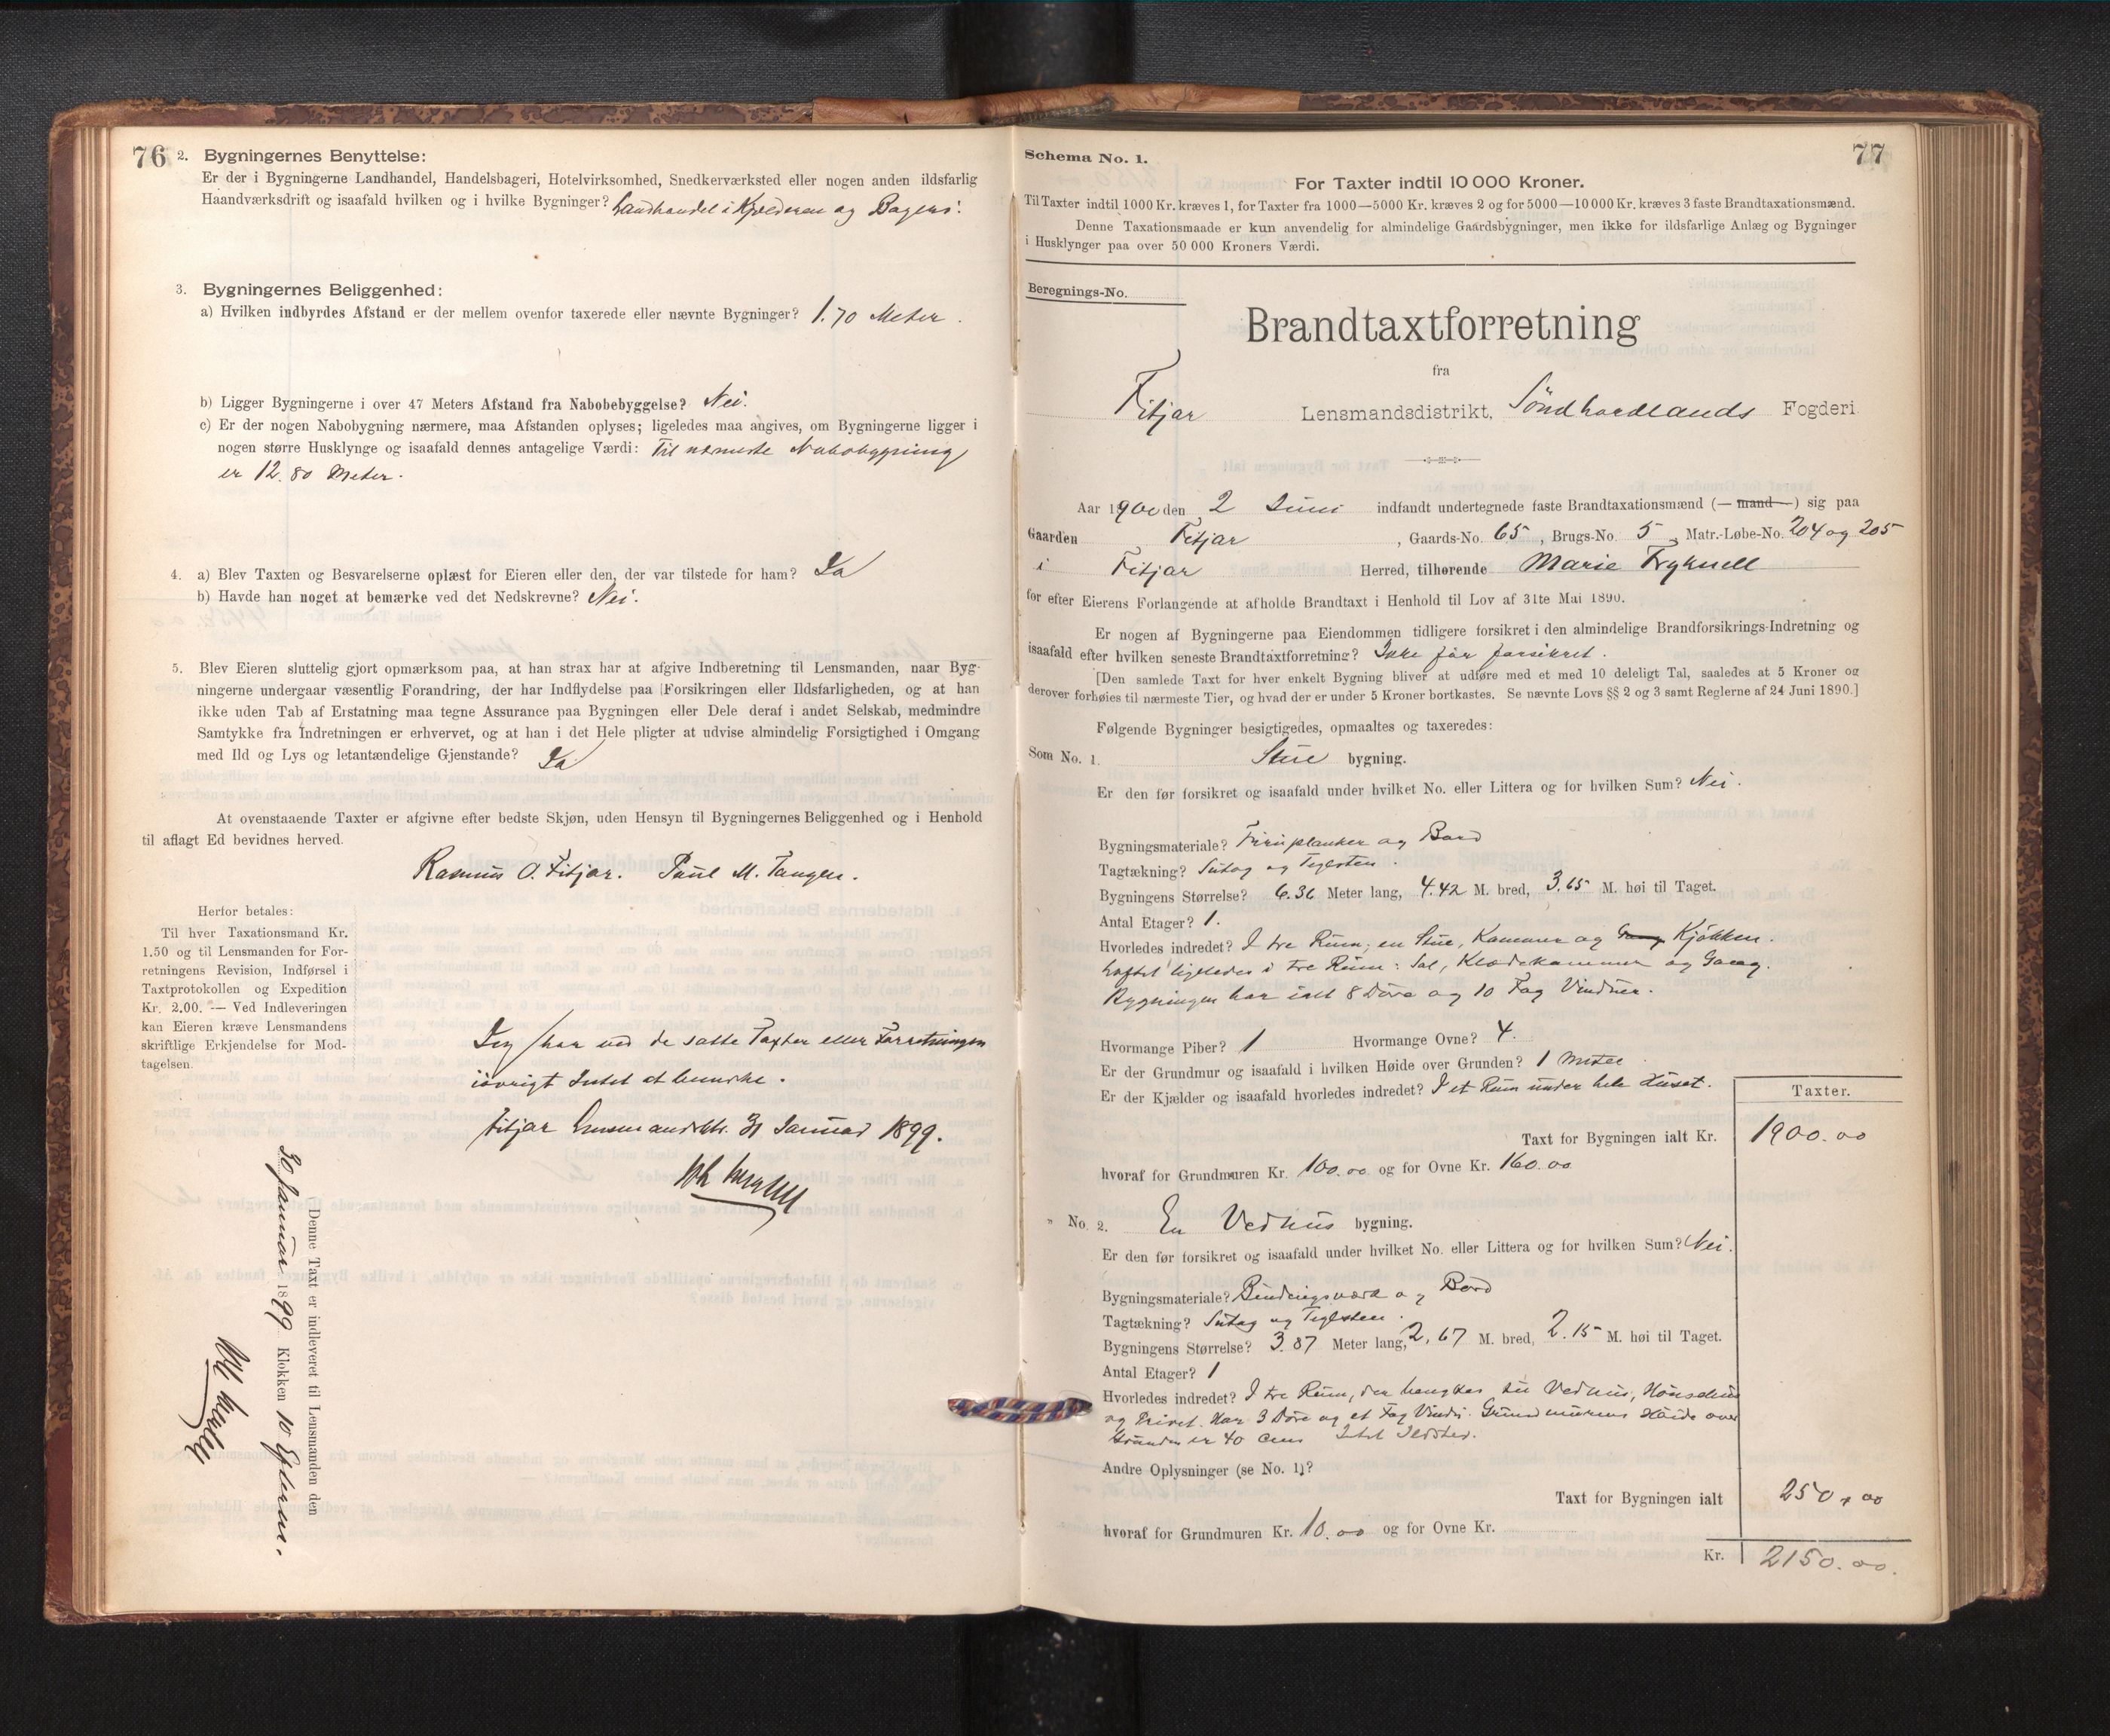 76
2. Bygningernes Benyttelse:
Er der i Bygningerne Landhandel, Handelsbageri, Hotelvirksomhed, Snedkerværksted eller nogen anden ildsfarlig
Haandværksdrift og isaafald hvilken og i hvilke Bygninger? Landhandel i Kjælderen og Bageri.
3. Bygningernes Beliggenhed:
a) Hvilken indbyrdes Afstand er der mellem ovenfor taxerede eller nævnte Bygninger? 1.70 Meter.
b) Ligger Bygningerne i over 47 Meters Afstand fra Nabobebyggelse? Nei.
c) Er der nogen Nabobygning nærmere, maa Afstanden oplyses; ligeledes maa angives, om Bygningerne ligger i
nogen større Husklynge og isaafald dennes antagelige Værdi: Til nærmeste Nabobygning
er 12.80 Meter.
4. a) Blev Taxten og Besvarelserne oplæst for Eieren eller den, der var tilstede for ham? Ja
b) Havde han noget at bemærke ved det Nedskrevne? Nei.
5. Blev Eieren sluttelig gjort opmærksom paa, at han strax har at afgive Indberetning til Lensmanden, naar Byg-
ningerne undergaar væsentlig Forandring, der har Indflydelse paa Forsikringen eller Ildsfarligheden, og at han
ikke uden Tab af Erstatning maa tegne Assurance paa Bygningen eller Dele deraf i andet Selskab, medmindre
Samtykke fra Indretningen er erhvervet, og at han i det Hele pligter at udvise almindelig Forsigtighed i Omgang
med Ild og Lys og letantændelige Gjenstande? Ja
At ovenstaaende Taxter er afgivne efter bedste Skjøn, uden Hensyn til Bygningernes Beliggenhed og i Henhold
til aflagt Ed bevidnes herved.
Rasmus O. Fitjar. Paul M. Tangen.
Herfor betales:
Til hver Taxationsmand Kr.
1.50 og til Lensmanden for For-
retningens Revision, Indførsel i
Taxtprotokollen og Expedition
Kr. 2.00. — Ved Indleveringen
kan Eieren kræve Lensmandens
skriftlige Erkjendelse for Mod-
tagelsen.
Jeg har ved de satte Taxter eller Forretningen
iøvrigt Intet at bemærke.
Fitjar Lensmandsktr. 31 Januar 1899.
Denne Taxt er indleveret til Lensmanden den
30 Januar 1899 Klokken 10 Efterm.
77
Schema No. 1.
For Taxter indtil 10 000 Kroner.
Til Taxter indtil 1000 Kr. kræves 1, for Taxter fra 1000—5000 Kr. kræves 2 og for 5000—10 000 Kr. kræves 3 faste Brandtaxationsmænd.
Denne Taxationsmaade er kun anvendelig for almindelige Gaardsbygninger, men ikke for ildsfarlige Anlæg og Bygninger
i Husklynger paa over 50 000 Kroners Værdi.
Beregnings-No.
Brandtaxtforretning
fra
Fitjar Lensmandsdistrikt, Söndhordlands Fogderi
Aar 1900 den 2 Juni indfandt undertegnede faste Brandtaxationsmænd (— mand —) sig paa
Gaarden Fitjar, Gaards-No. 65, Brugs-No. 5, Matr.-Løbe-No. 204 og 205
i Fitjar Herred, tilhørende Marie Tryknell
for efter Eierens Forlangende at afholde Brandtaxt i Henhold til Lov af 31te Mai 1890.
Er nogen af Bygningerne paa Eiendommen tidligere forsikret i den almindelige Brandforsikrings-Indretning og
isaafald efter hvilken seneste Brandtaxtforretning? Ikke för forsikret.
[Den samlede Taxt for hver enkelt Bygning bliver at udføre med et med 10 deleligt Tal, saaledes at 5 Kroner og
derover forhøies til nærmeste Tier, og hvad der er under 5 Kroner bortkastes. Se nævnte Lovs §§ 2 og 3 samt Reglerne af 24 Juni 1890.]
Følgende Bygninger besigtigedes, opmaaltes og taxeredes:
Som No. 1. Stue bygning.
Er den før forsikret og isaafald under hvilket No. eller Littera og for hvilken Sum? Nei.
Bygningsmateriale? Furuplanker og Bord
Tagtækning? Sutag og Teglsten.
Bygningens Størrelse? 6.36 Meter lang, 4.42 M. bred, 3.65 M. høi til Taget.
Antal Etager? 1.
Hvorledes indredet? I tre Rum; en Stue, Kammer og Gang Kjökken.
Loftet ligeledes i tre Rum: Sal, Klædekammer og Gang.
Bygningen har ialt 8 Döre og 10 Fag Vinduer.
Hvormange Piber? 1 Hvormange Ovne? 4.
Er der Grundmur og isaafald i hvilken Høide over Grunden? 1 Meter
Er der Kjælder og isaafald hvorledes indredet? I et Rum under hele Huset.
Taxter.
Taxt for Bygningen ialt Kr. 1900.00
hvoraf for Grundmuren Kr. 100.00 og for Ovne Kr. 160.00
" No. 2. En Vedhus bygning.
Er den før forsikret og isaafald under hvilket No. eller Littera og for hvilken Sum? Nei.
Bygningsmateriale? Bindingsværk og Bord
Tagtækning? Sutag og Teglsten.
Bygningens Størrelse? 3.87 Meter lang, 2,67 M. bred, 2.15 M. høi til Taget.
Antal Etager? 1
Hvorledes indredet? I tre Rum, der benyttes til Vedhus, Hönsehus
og Privet. Har 3 Döre og et Fag Vindu. Grundmurens Höide over
Grunden er 40 Ctm Intet Ildsted.
Andre Oplysninger (se No. 1)?
Taxt for Bygningen ialt 250,00
hvoraf for Grundmuren Kr. 10.00 og for Ovne Kr.
Kr. 2150.00.